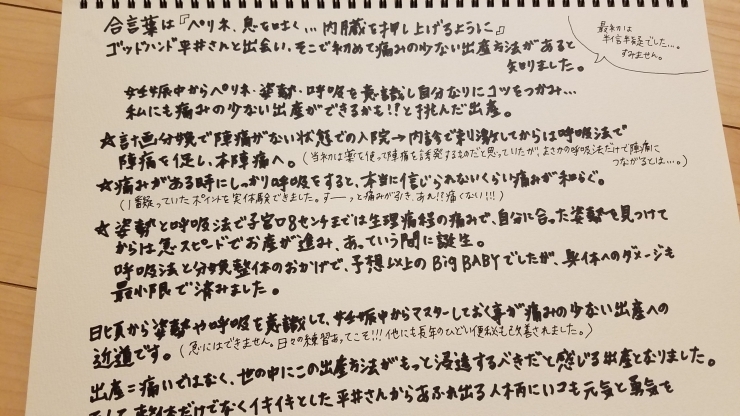 合言葉は『ペリネ、息を吐く…内臓を押し上げるように』
最初は
半信半疑でした…。
すみません。
ゴッドハンド平井さんと出会い、そこで初めて痛みの少ない出産方法があると
知りました。
妊娠中からペリネ・姿勢・呼吸を意識し自分なりにコツをつかみ…
私にも痛みの少ない出産ができるかも!!と挑んだ出産。
★計画分娩で陣痛がない状態での入院→内診で刺激してからは呼吸法で
陣痛を促し、本陣痛へ。(当初は薬を使って陣痛を誘発するものだと思っていたが、まさかの呼吸法だけで陣痛に
つながるとは…。)
★痛みがある時にしっかり呼吸をすると、本当に信じられないくらい痛みが和らぐ。
(1番疑っていたポイントを実体験できました。すーっと痛みが引き、あれ!?痛くない!!!)
★姿勢と呼吸法で子宮口8センチまでは生理痛程の痛みで、自分に合った姿勢を見つけて
からは急スピードでお産が進み、あっていう間に誕生。
呼吸法と分娩整体のおかげで、予想以上のBig BABYでしたが、身体へのダメージも
最小限で済みました。
日頃から姿勢や呼吸を意識して、妊娠中からマスターしておく事が痛みの少ない出産への
近道です。(急にはできません。日々の練習あってこそ!!!他にも長年のひどい便秘も改善されました。)
出産=痛いではなく、世の中にこの出産方法がもっと浸透するべきだと感じる出産となりました。
整体だけでなくイキイキとした平井さんからあふれ出る人柄にいつも元気と勇気を